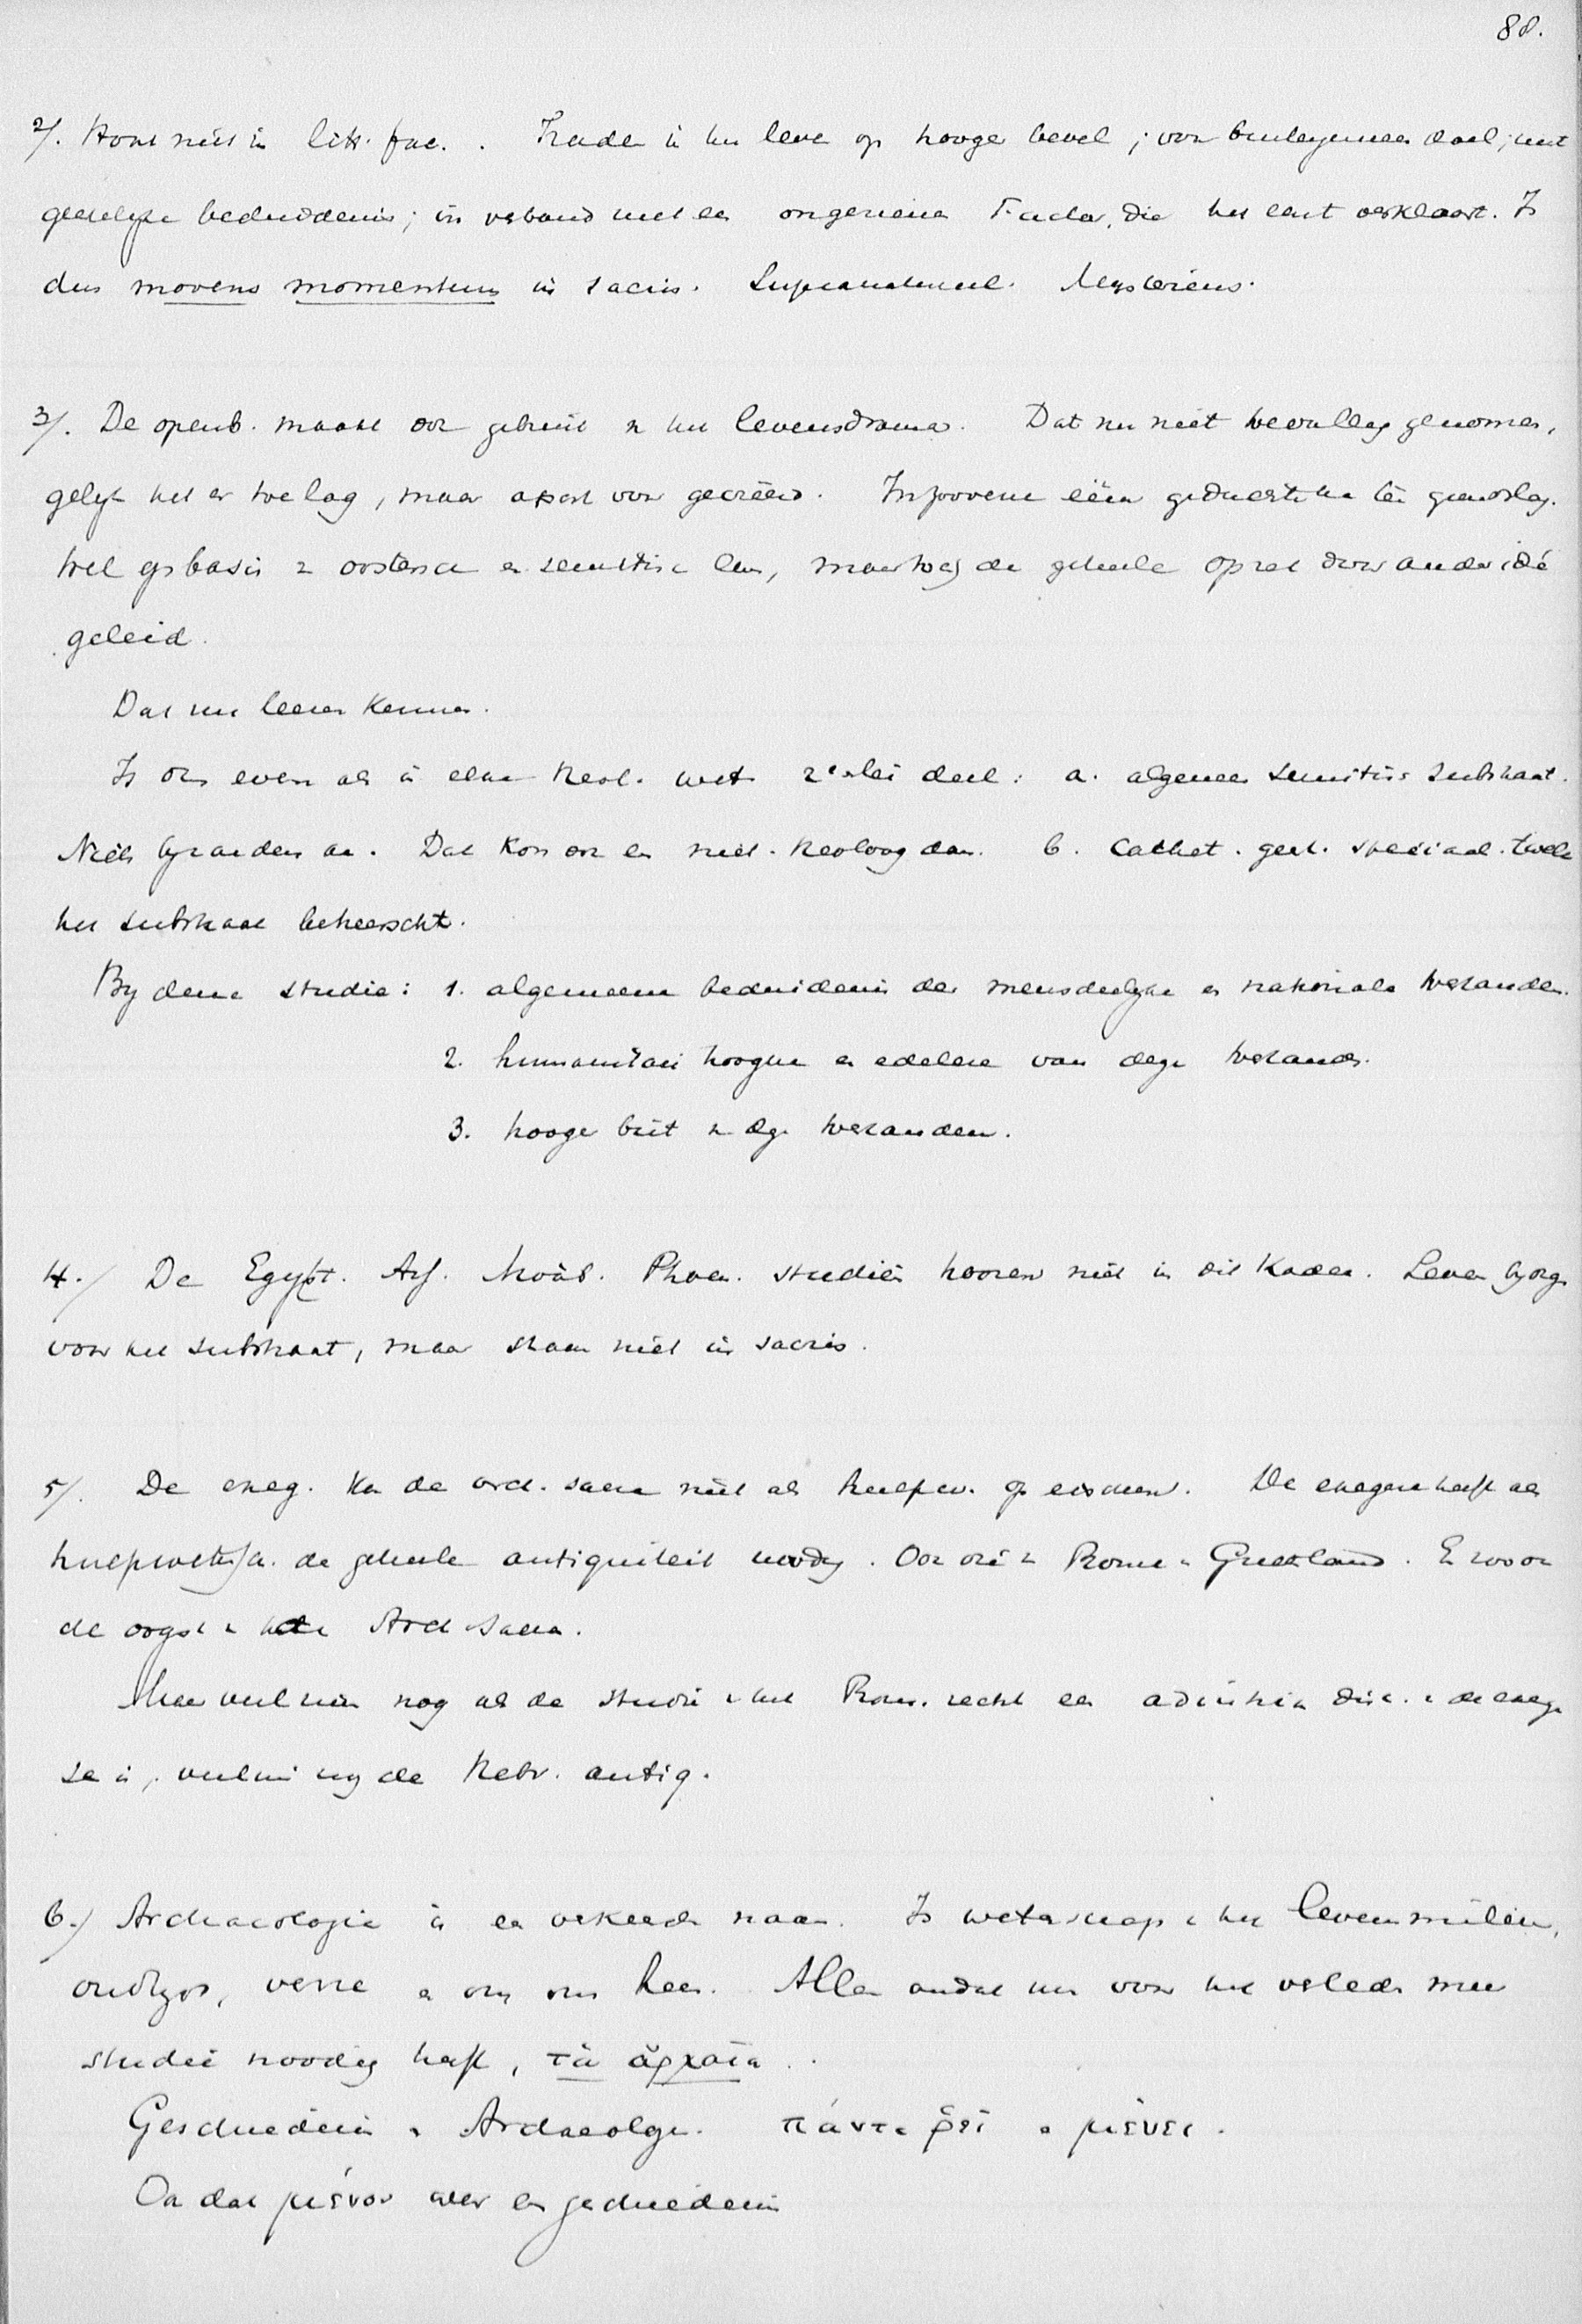 88.
2/. Hoort niet in litt. fac. . Trade in het leve op hooger bevel; voor buitengemeen doel; met
geestelyke beduidenis; in verband met een ongeziene Factor, die het eerst verklaart. Is
dus movens momentum in sacris. Supranatureel. Mysterieus.
3/. De openb. maakt ook gebruik v het levensdrama. Dat nu niet toevallig genomen,
gelyk het er toe lag, maar apart voor gecreëerd. ten grondslag.
Wel op basis v oostersche en semitische leven, maar toch de geheele opzet door ander idé
geleid.
Dat nu leeren kennen.
Is ook even als in elke theol. wet. 2erlei deel: a. algemeen semitisch substraat.
Niets byzonders aan. Dat kon ook een niet-theoloog doen. b. speciaal. twelk
het substraat beheerscht.
By deze studie: 1. algemeene beduidenis der menschelyke en nationale toestanden.
2. humanitair hoogere en edelere van deze toestand.
3. hooger v deze toestanden.
4./ De Egypt. Ass. Moab. Phoen. studiën hooren niet in dit Kader. Leveren
voor het substraat, maar staan niet in sacris.
5/. De exeg. kan de arch. sacra niet als hulpw. op eischen. De exegese heeft als
hulpwetensch. de geheele antiquiteit noodig. Ook die v Rome en Griekenland. En voor
de oogst v h Arch sacra.
Maar veel min nog als de studie v het Rom. recht een disc. v de exege
se is, veelmin nog de Hebr. antiq.
6./ Archaeologie is een verkeerde naam. Is wetenschap v het levensmilieu,
oudtyds, verre en om ons heen. Alleen omdat men voor het verleden meer
studie noodig heeft, τὰ ἀρχαῖα.
Geschiedenis en Archaeologie. πάντα ῥεῖ en μένει.
Ook dat μένον weer een geschiedenis